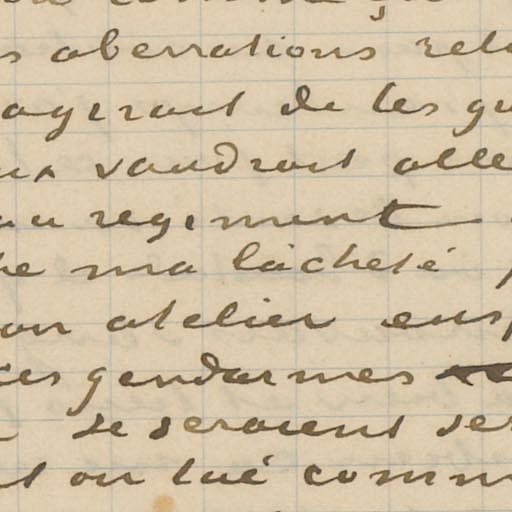 s aberrations rel
ageront de les gu
ux vaudrait alle
au regiment
he ma lâcheté
on atelier ens
ces gendarmes
se seraient ser
t on tué comm